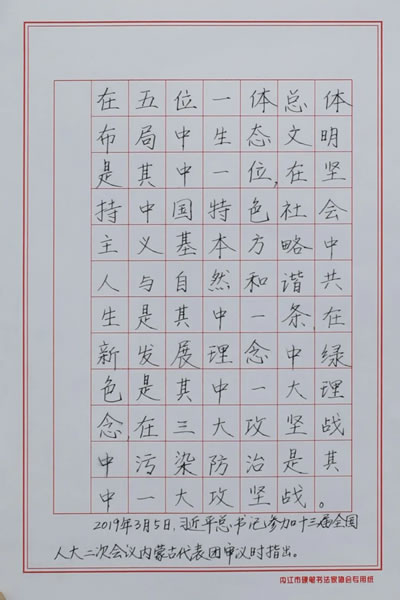 在五位一体总体
布局中生态文明
是其中一位,在坚
持中国特色社会
主义基本方略中
人与自然和谐共
生是其中一条,在
新发展理念中绿
色是其中一大理
念,在三大攻坚战
中污染防治是其
中一大攻坚战。
2019年3月5日,习近平总书记参加十三届全国
人大二次会议内蒙古代表团审议时指出。
内江市硬笔书法家协会专用纸